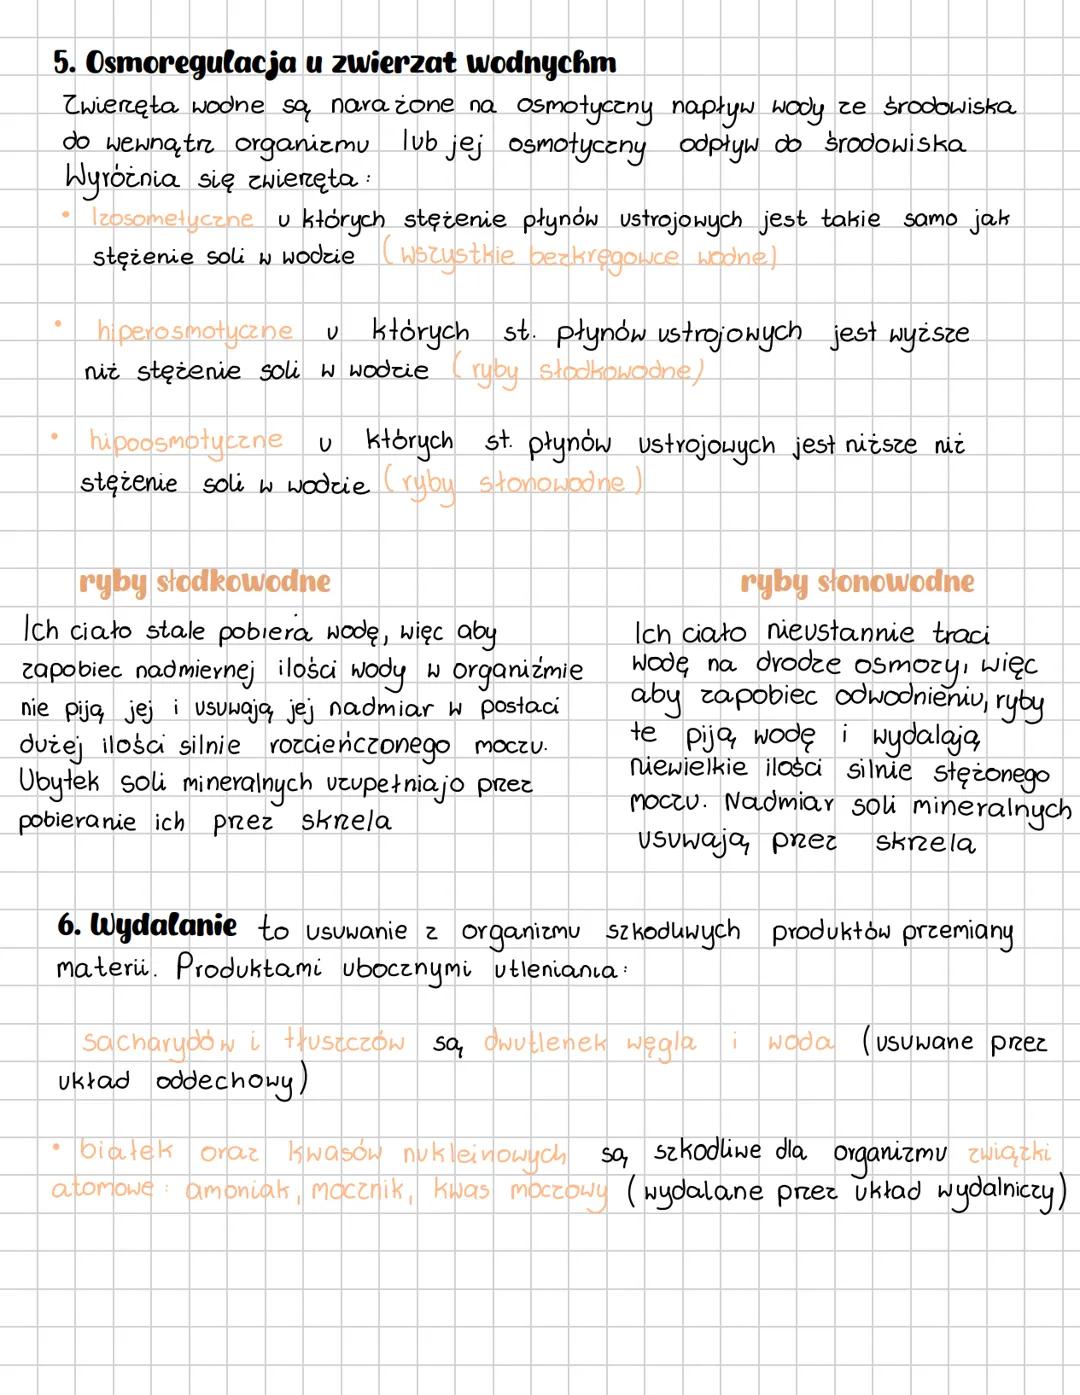 5. Osmoregulacja u zwierzat wodnychm
Zwierzęta wodne są narażone na osmotyczny napływ wody ze środowiska
do wewnątrz organizmu lub jej osmotyczny odpływ do środowiska
Wyróżnia się zwierzęta:
• Izosometyczne u których stężenie płynów ustrojowych jest takie samo jak
stężenie soli w wodzie (wszystkie bezkręgowce wodne)
• hiperosmotyczne u których st. płynów ustrojowych jest wyższe
niż stężenie soli w wodzie (ryby słodkowodne)
• hipoosmotyczne u których st. płynów ustrojowych jest niższe niż
stężenie soli w wodzie (ryby słonowodne)
ryby słodkowodne
Ich ciało stale pobiera wodę, więc aby
zapobiec nadmiernej ilości wody w organiźmie
nie piją jej i usuwają jej nadmiar w postaci
dużej ilości silnie rozcieńczonego moczu.
Ubytek soli mineralnych uzupełniajo przez
pobieranie ich przez skrzela
ryby słonowodne
Ich ciało nieustannie traci
wodę na drodze osmozy, więc
aby zapobiec odwodnieniu, ryby
te piją wodę i wydalają
niewielkie ilości silnie stężonego
moczu. Nadmiar soli mineralnych
usuwają przez skrzela
6. Wydalanie to usuwanie z organizmu szkodliwych produktów przemiany
materii. Produktami ubocznymi utleniania:
sacharydów i tłuszczów są dwutlenek węgla i woda (usuwane przez
układ oddechowy)
• białek oraz kwasów nukleinowych są szkodliwe dla organizmu związki
atomowe: amoniak, mocznik, kwas moczowy (wydalane przez układ wydalniczy)